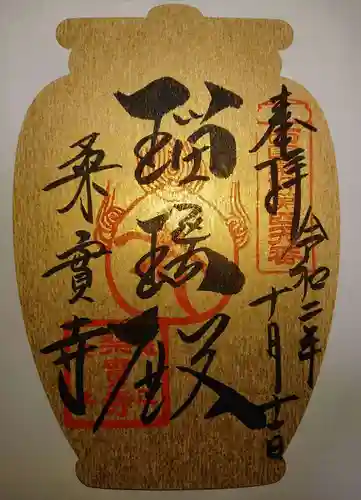 奉拝
令和二年
十月十一日
瑠璃殿
柔實寺